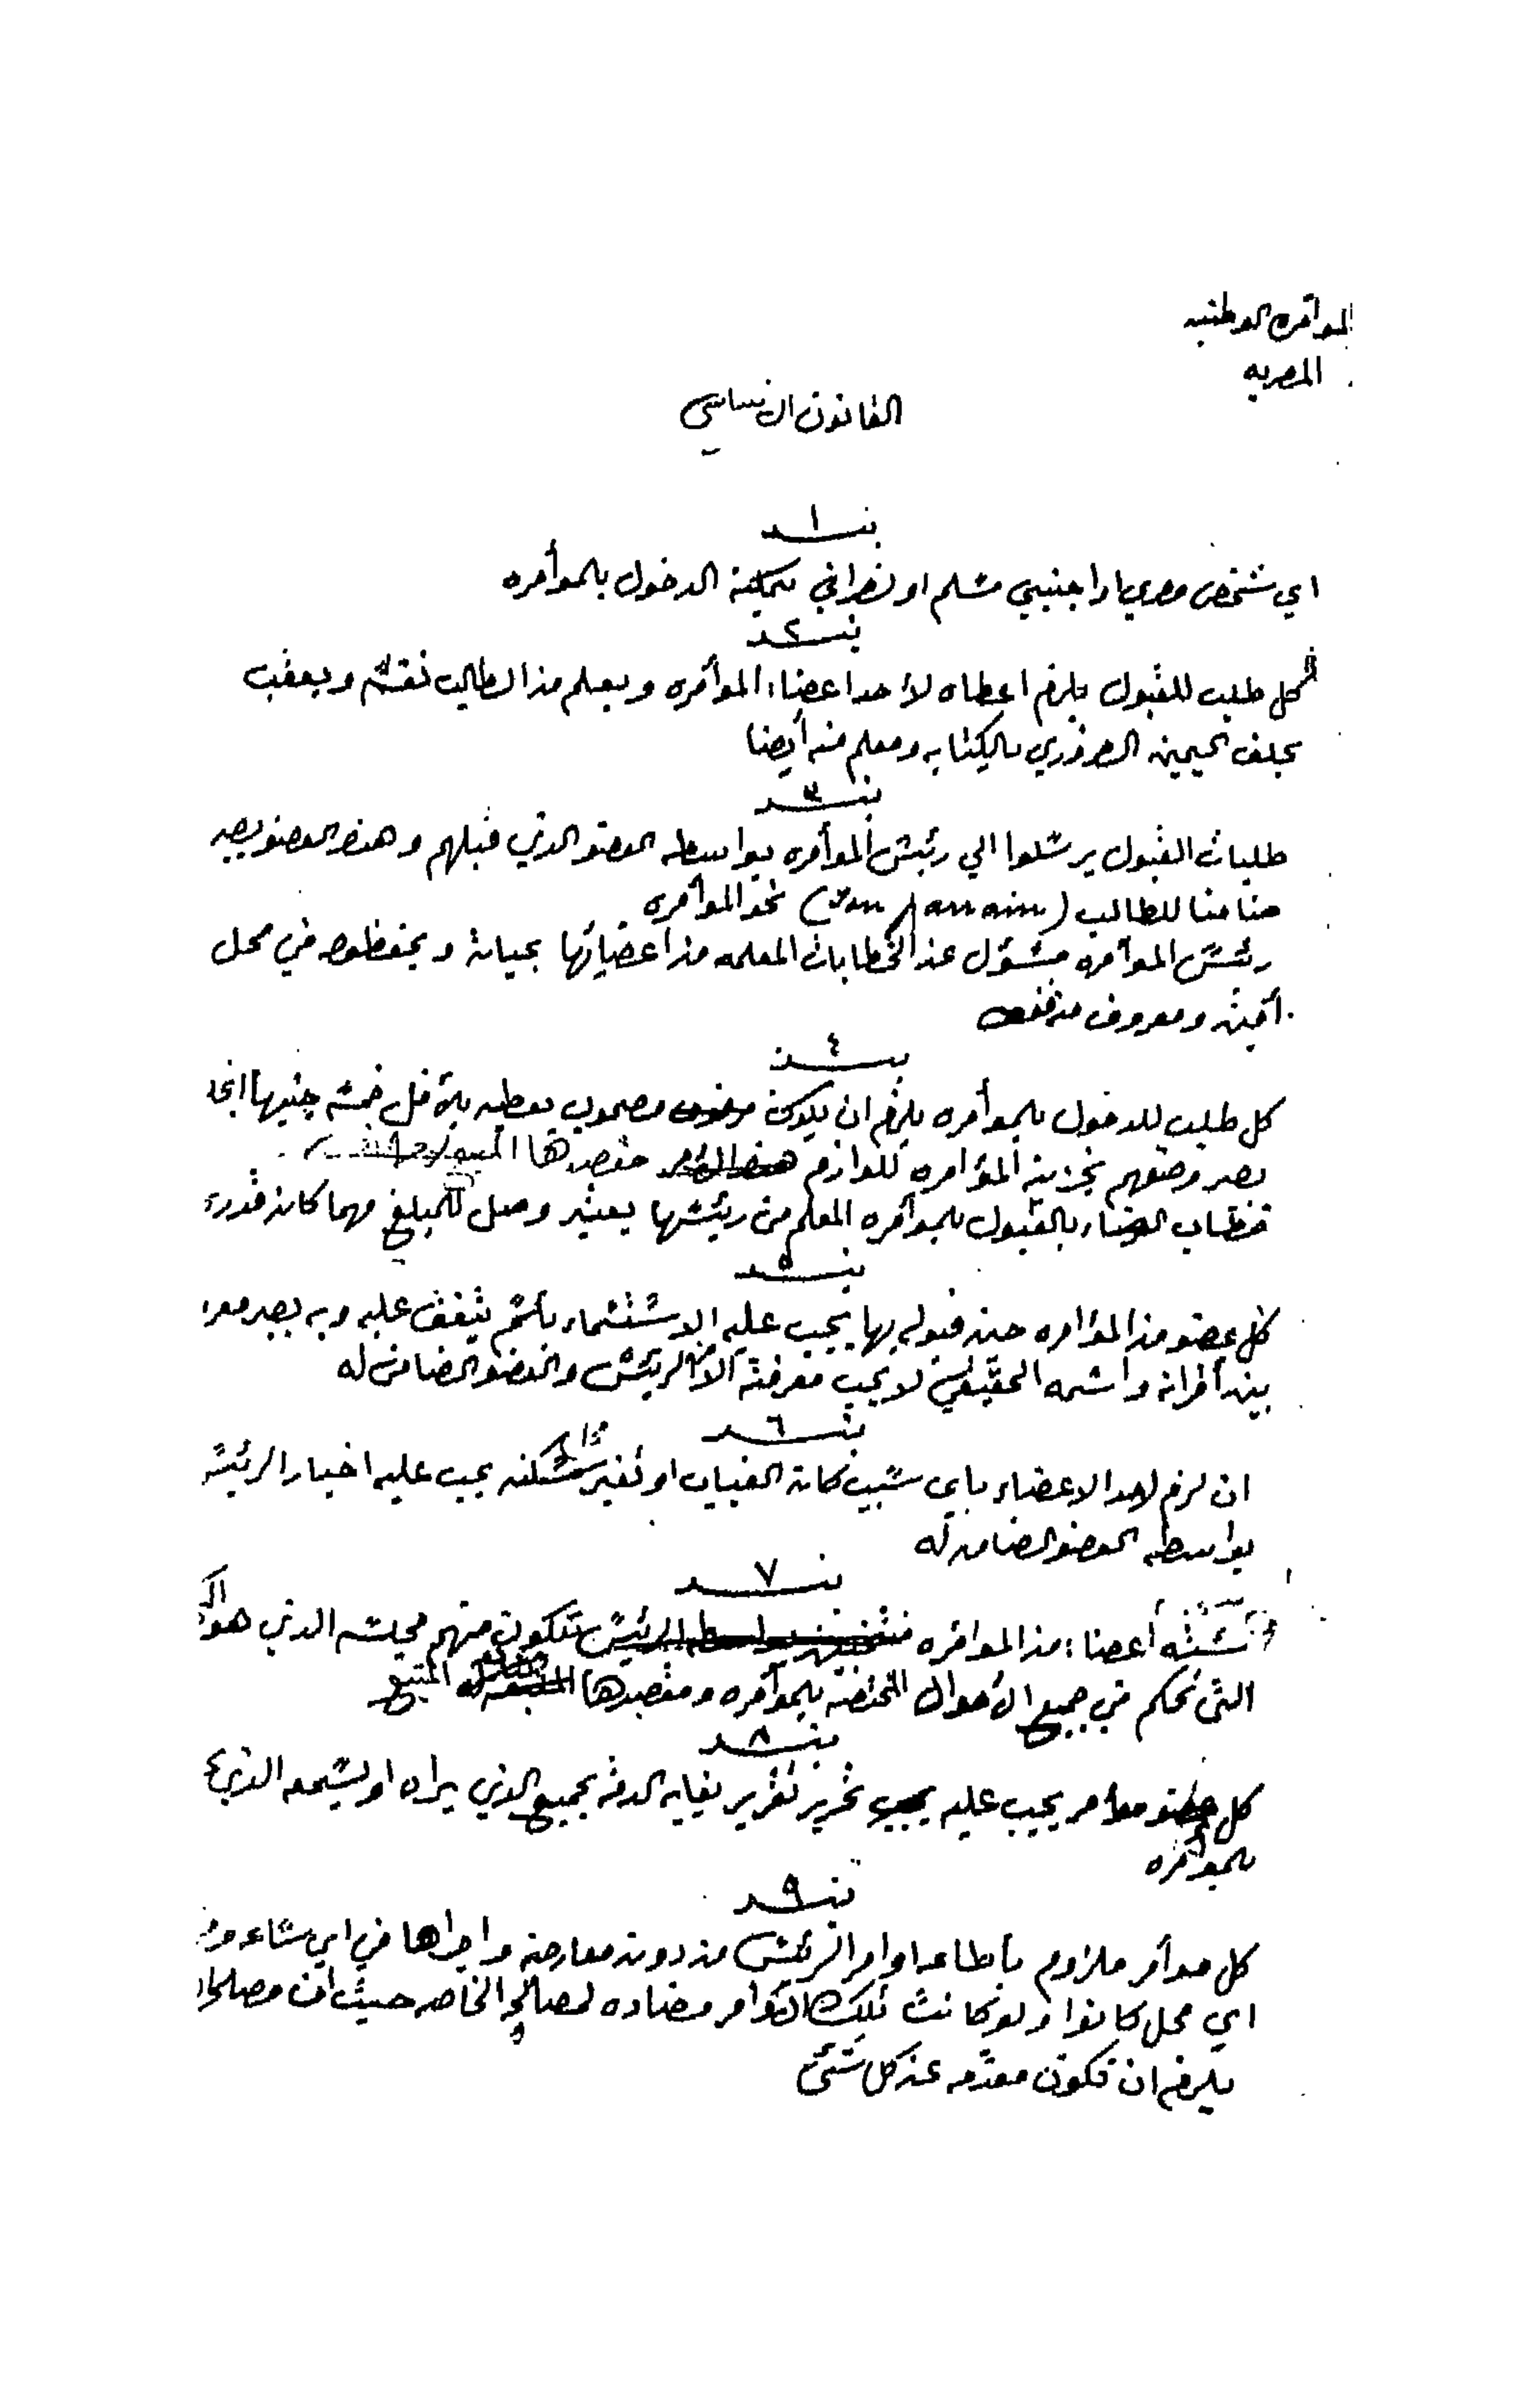 الموآمره الوطنيه
المصريه
القانون الاساسي
بنـ ١ ـد
اي شخص مصري او اجنبي مسلم او نصراني يمكنه الدخول بالموأمره
بنـ ٢ ـد
كل طلب للقبول يلزم اعطاه لأحد اعضاء الموأمره ويعلم من الطالب نفسه وبعقب
بحلف اليمين الضروري بالكتابه ومعلم منه أيضا
بنـ ٣ ـد
طلبات القبول يرسلوا الي رئيس الموأمره بواسطه العضو الذي قبلهم وهذا العضو يصير
ضامنا للطالب (son parrain) نحو الموأمره
رئيس الموآمره مسؤل عن الخطابات المعلمه من اعضائها بحياته ويحفظوا في محل
أمين ومعروف منه فقط
بنـ ٤ ـد
كل طلب للدخول بالموأمره يلزم ان يكون مصحوب بعطيه بلأقل خمسة جنيهات
يصير وضعهم بخزينة المؤامره للوازم مقصدها
فخطاب بالقبول بالموآمره المعلم من رئيسها يعتبر وصل للمبلغ مهما كان قدره
بنـ ٥ ـد
كل عضو من المؤامره حين قبوله بها يجب عليه الاستسماء بأسم يتفق عليه وبه يصير
بين أقرانه وأسمه الحقيقي لا يجب معرفته الا من الرئيس والعضو الضامن له
بنـ ٦ ـد
ان لزم لاحد الاعضاء بأي سبب كان الغياب او تغيير مسكنه يجب عليه اخبار الرئيس
بواسطه العضو الضامن له
بنـ ٧ ـد
ستة أعضاء من الموامره منتخبين بواسطه الرئيس تتكون منهم مجلسه الذي هو
التي تحكم في جميع الأحوال المختصه بالموآمره ومقصدها المتبع
بنـ ٨ ـد
كل عضو موأمر يجب عليه تحرير تقرير بغايه الدقه بجميع الذي يراه او يسمعه
بالموأمره
بنـ ٩ ـد
كل موأمر ملزوم بأطاعه اوامر الرئيس من دون معارضه واجراها في اي ساعه
اي محل كانوا ولو كانت تلك الاوامر مضاده لمصالحه الخاصه حيث ان
يلزم ان تكون مقدمه عن كل شئ